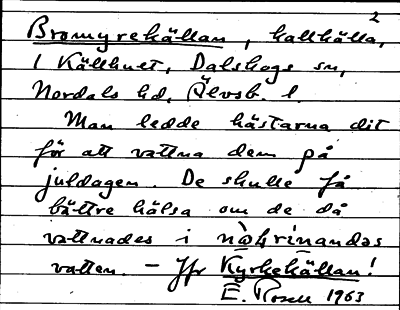 2
Bromyrekällan, kallkälla,
i Källhult, Dalskogs sn,
Nordals hd, Älvsb. l.
Man ledde hästarna dit
för att vattna dem på
juldagen. De skulle få
bättre hälsa om de då
vattnades i nòḷrinandas
vatten. – Jfr Kyrkekällan!
E. Rosell 1963